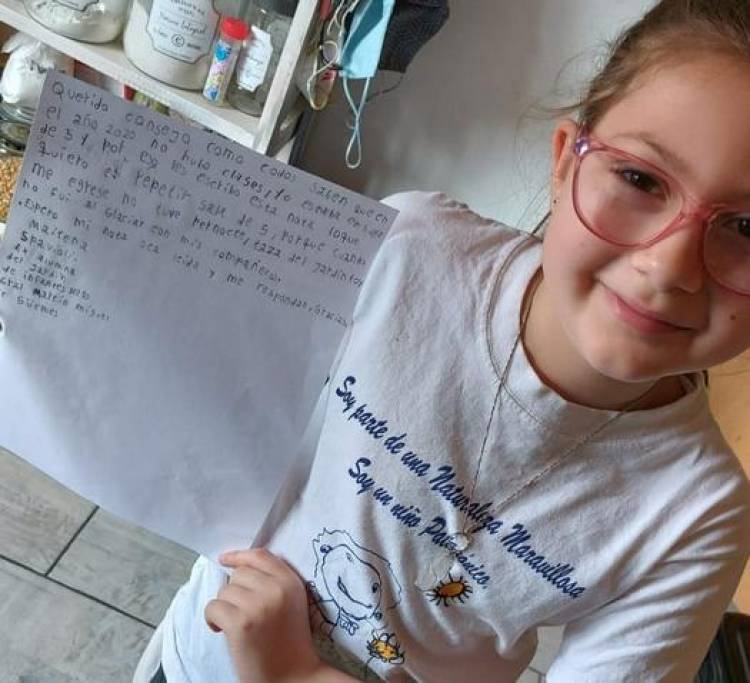 Querida canseja como codos saben que en
el año 2020 no hubo clases, yo estaba en sala
de 5 y por eso les escribo esta nota loque
quiero es repetir sala de 5, porque cuando
me egrese no tuve pernocte, taza del Jardín
no fui al Glaciar con mis compañeros.
Espero mi nota sea leida y me respondan, Gracias.
Maitena
ex alumna
del Jardín
de infantes
Gral Martín Miguel
e Güemes
Soy parte de una Naturaleza Maravillosa
Soy un niño